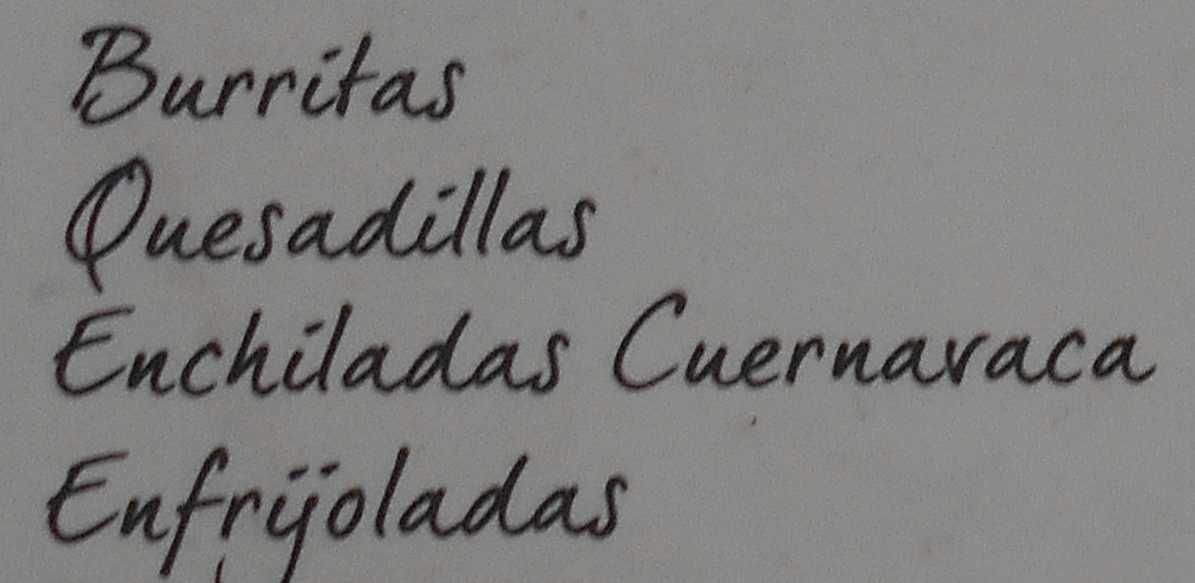 Burritas
Quesadillas
Enchiladas Cuernavaca
Enfrijoladas